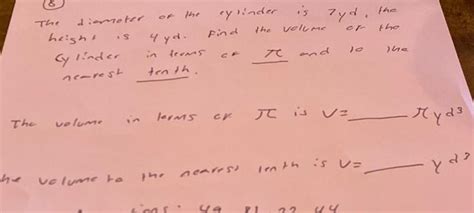 8
The diameter of the cylinder is 7yd, the
height is 4 yd. Find the volume of the
Cylinder in terms of π and to the
nearest tenth.
The volume in terms of π is V=____ πyd³
he volume to the nearest tenth is V=____ yd³
49 81 22 44